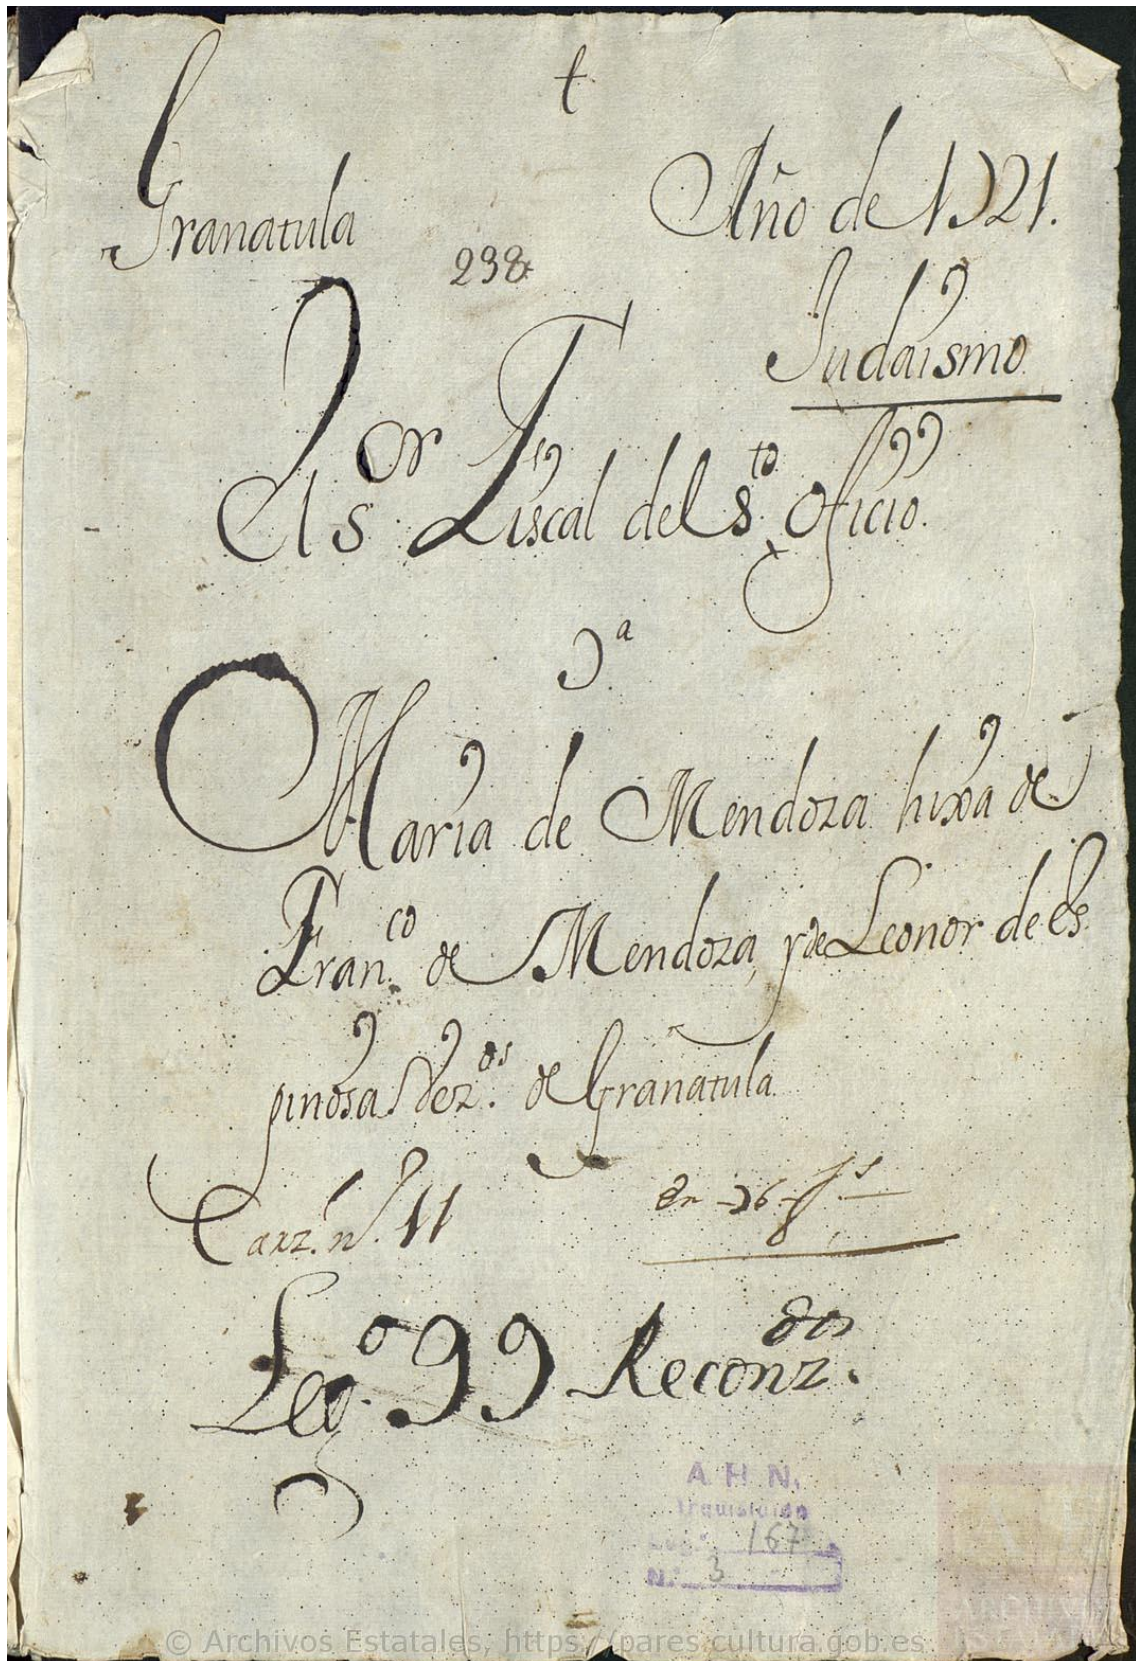 t
Granatula
Año de 1721.
238
Judaismo
El s.or Fiscal del s.to Oficio.
Da.
Maria de Mendoza hixa de
Fran.co de Mendoza, y de Leonor de Es
pinosa Vez.os de Granatula
Carz. n.o 11
en 76 fs
Leg.o 99 Reconz.dos
A. H. N.
Inquisición
Leg.o 167
N.o 3
© Archivos Estatales, https://pares.cultura.gob.es